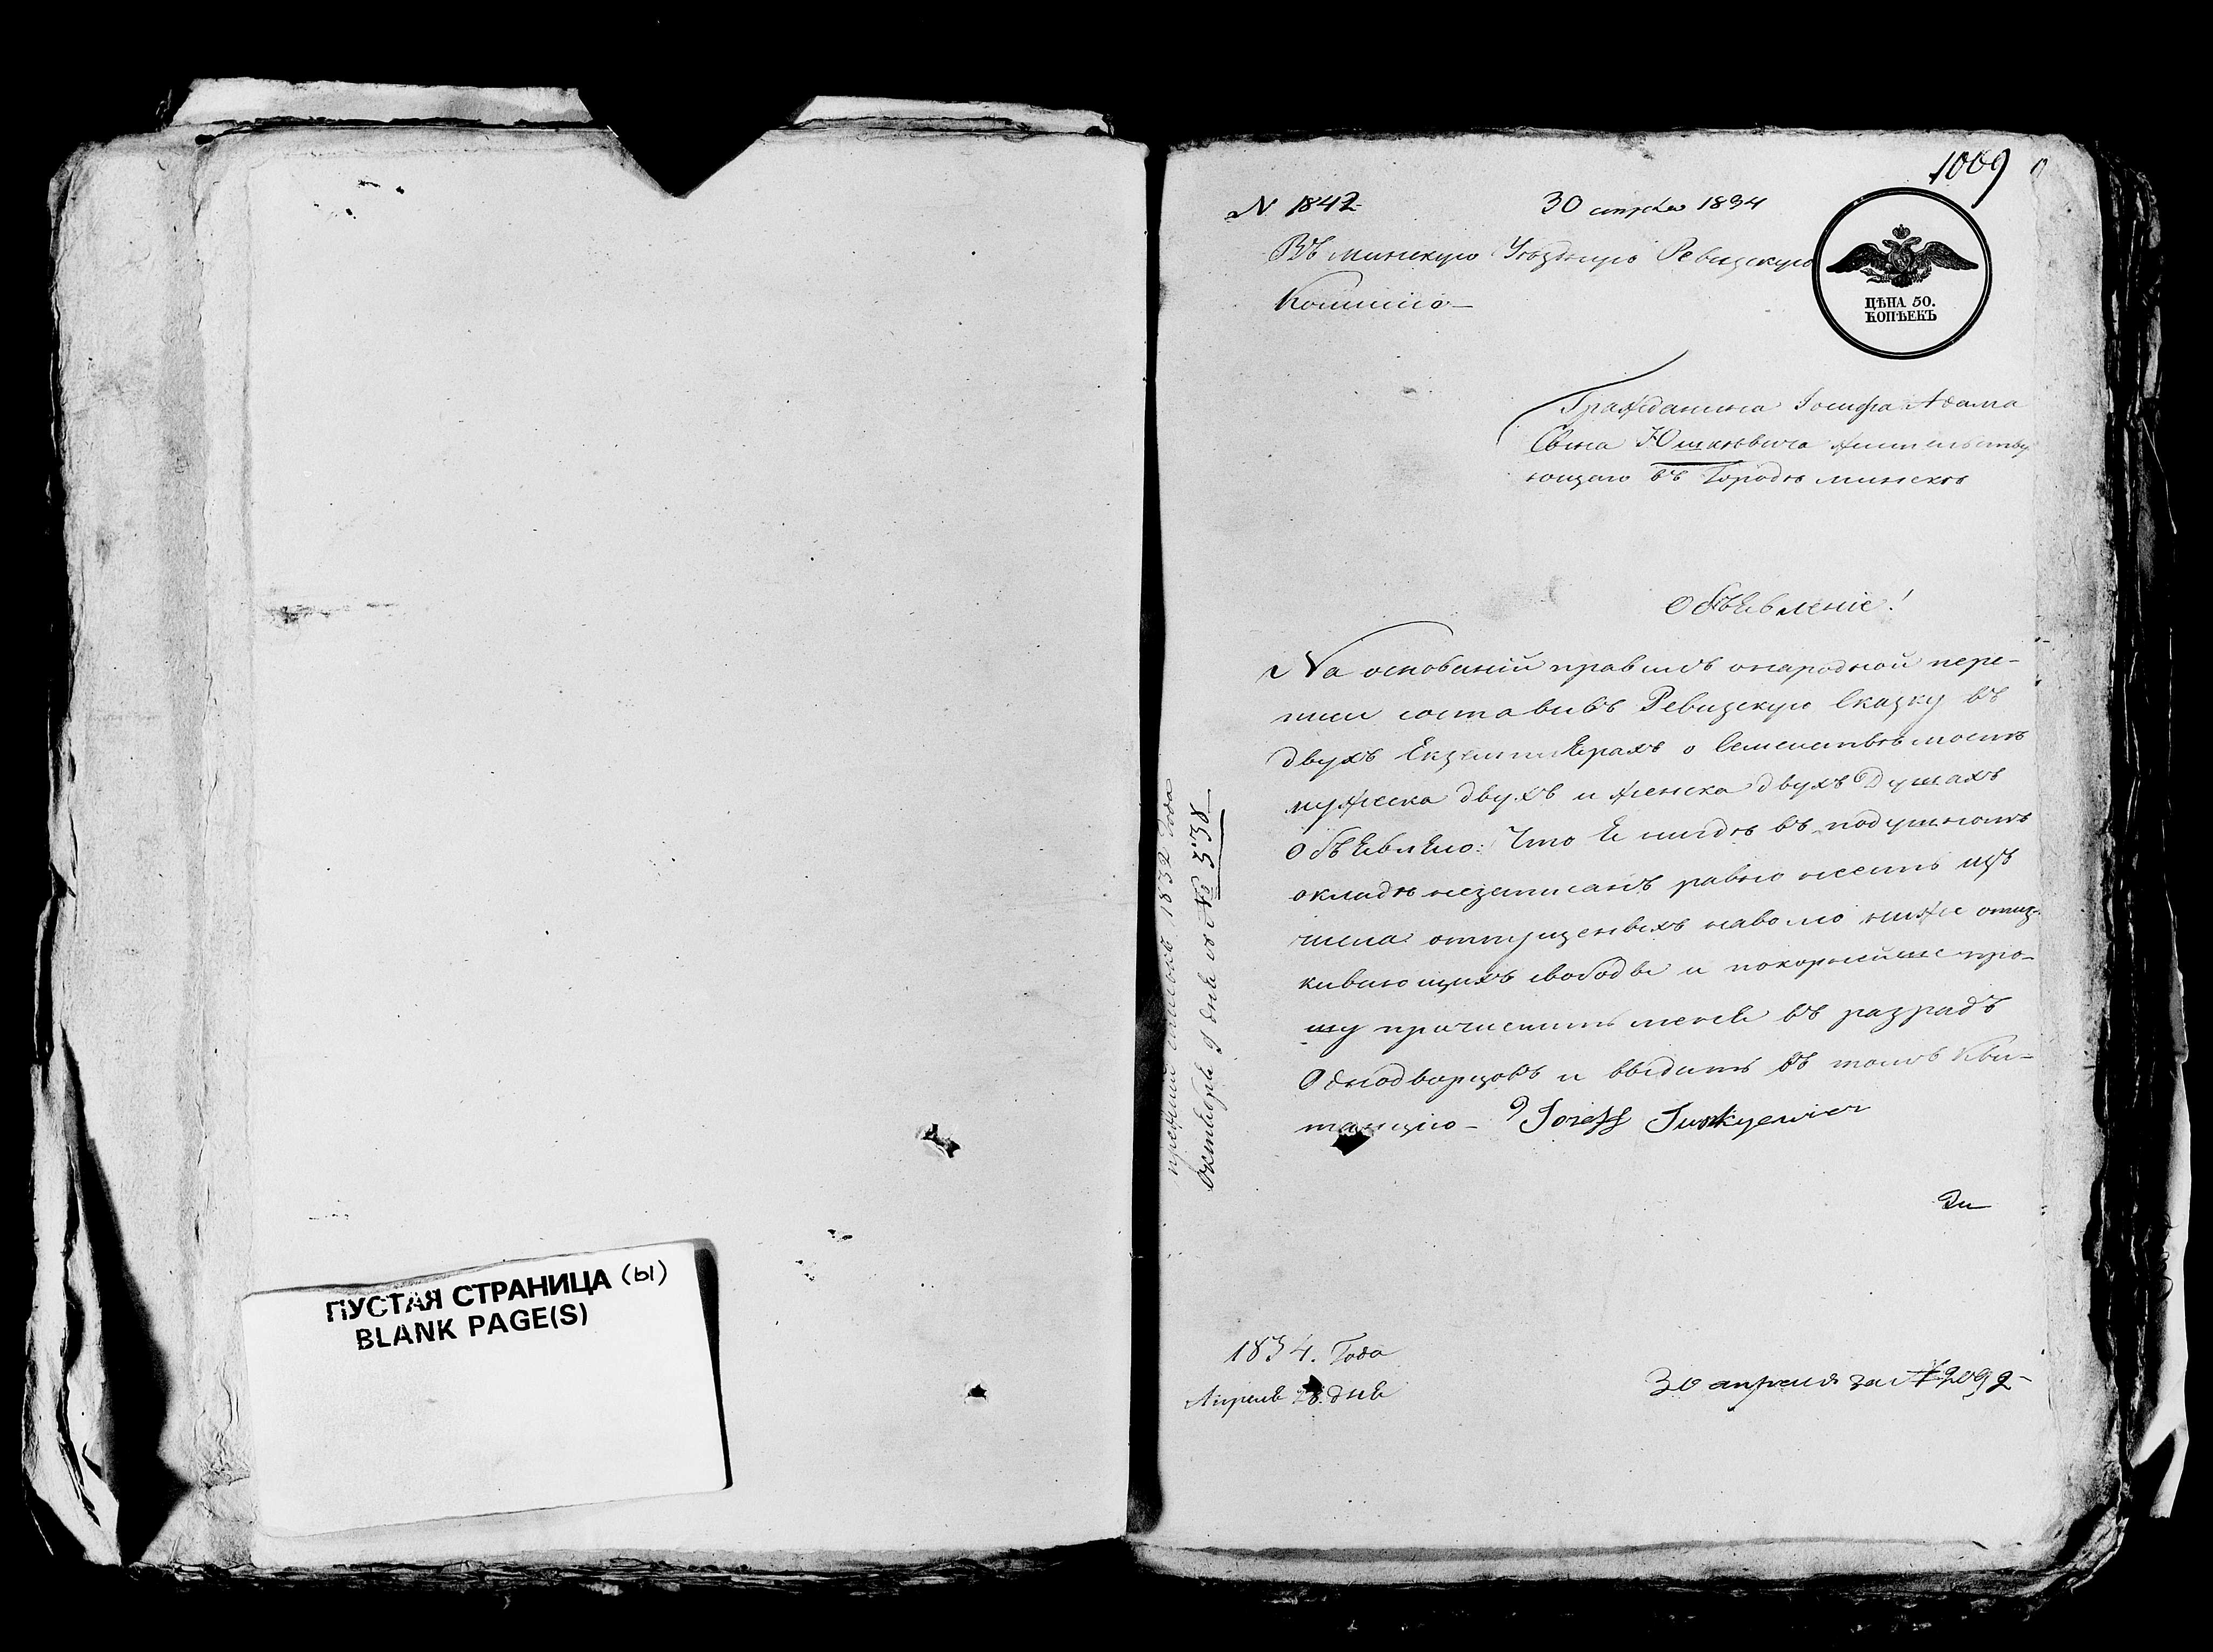 ПУСТАЯ СТРАНИЦА (ы)
BLANK PAGE(S)
1009
N 1842 30 апреля 1834
Въ минскую Уѣздную Ревизскую
Комисію
ЦѢНА 50.
КОПѢЕКЪ
Гражданина Іосифа Адама
Сына Юшкѣвича жительству
ющаго въ Городѣ минскѣ
Объевленіе!
На основаніи правилъ онародной пере-
писи составивъ Ревизскую Сказку въ
двухъ Екземплярахъ о Семействѣ моемъ
мужеска двухъ и женска двухъ Душахъ
Объевляю: Что я нигдѣ въ подушномъ
окладѣ незаписанъ равно несть изъ
числа отпущеныхъ наволю ниже отыс-
кивающихъ свободы и покорнѣйше про-
шу причислить меня въ разрадъ
Однодворцовъ и выдать въ томъ Кви-
танцію — Jozeff Juszkiewicz
1834. Года
Апреля 28. дня
30 апреля за № 2092
1832 Года
октября 9 дня за № 538